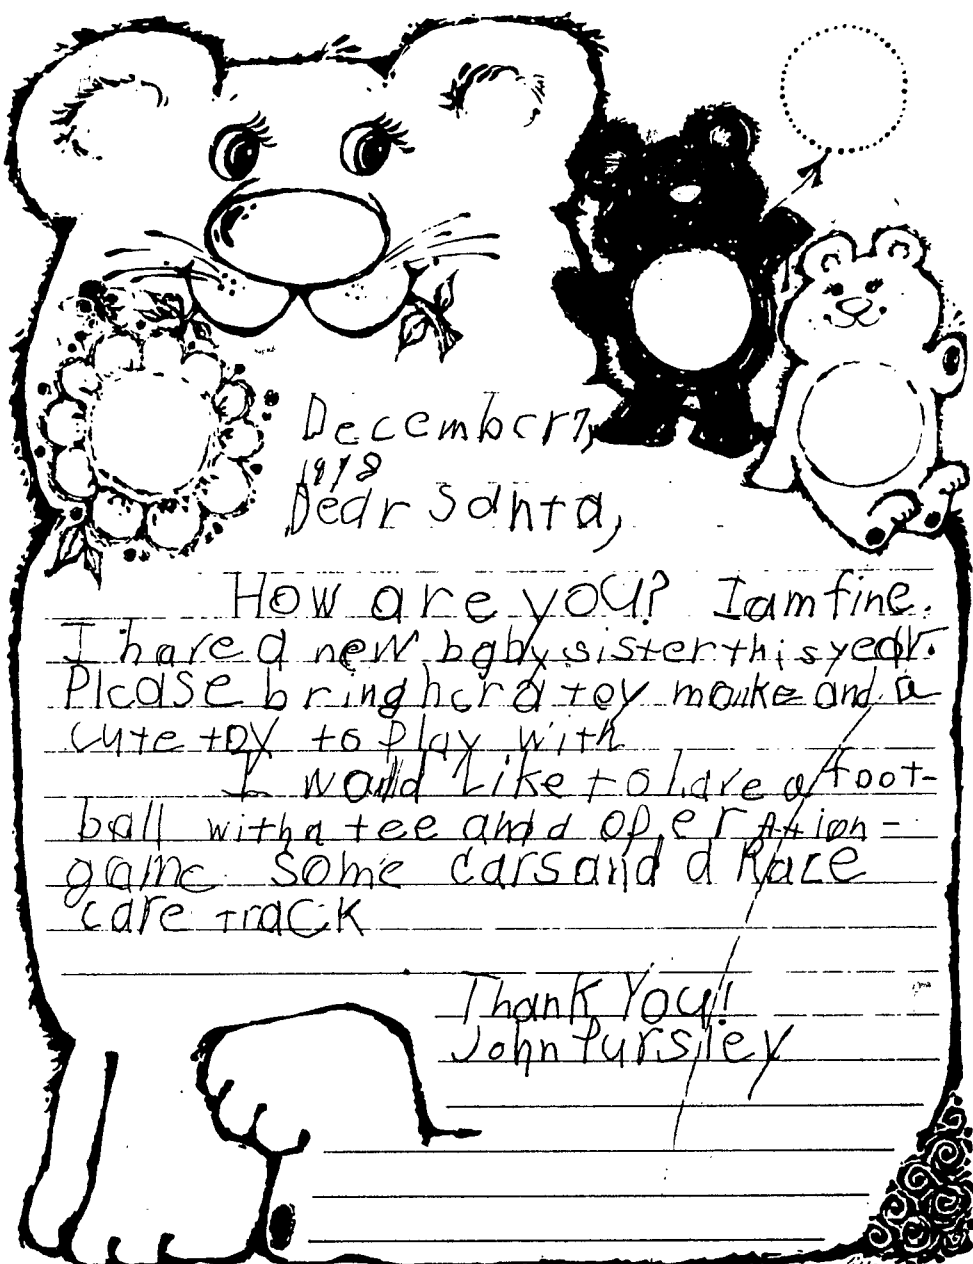 December 7,
1978
Dear Santa,
How are you? I am fine.
I have a new baby sister this year.
Please bring her a toy make and a
cute toy to play with
I would like to have a foot-
ball with a tee and a operation-
game some cars and a Race
care track
Thank You!!
John Pursley